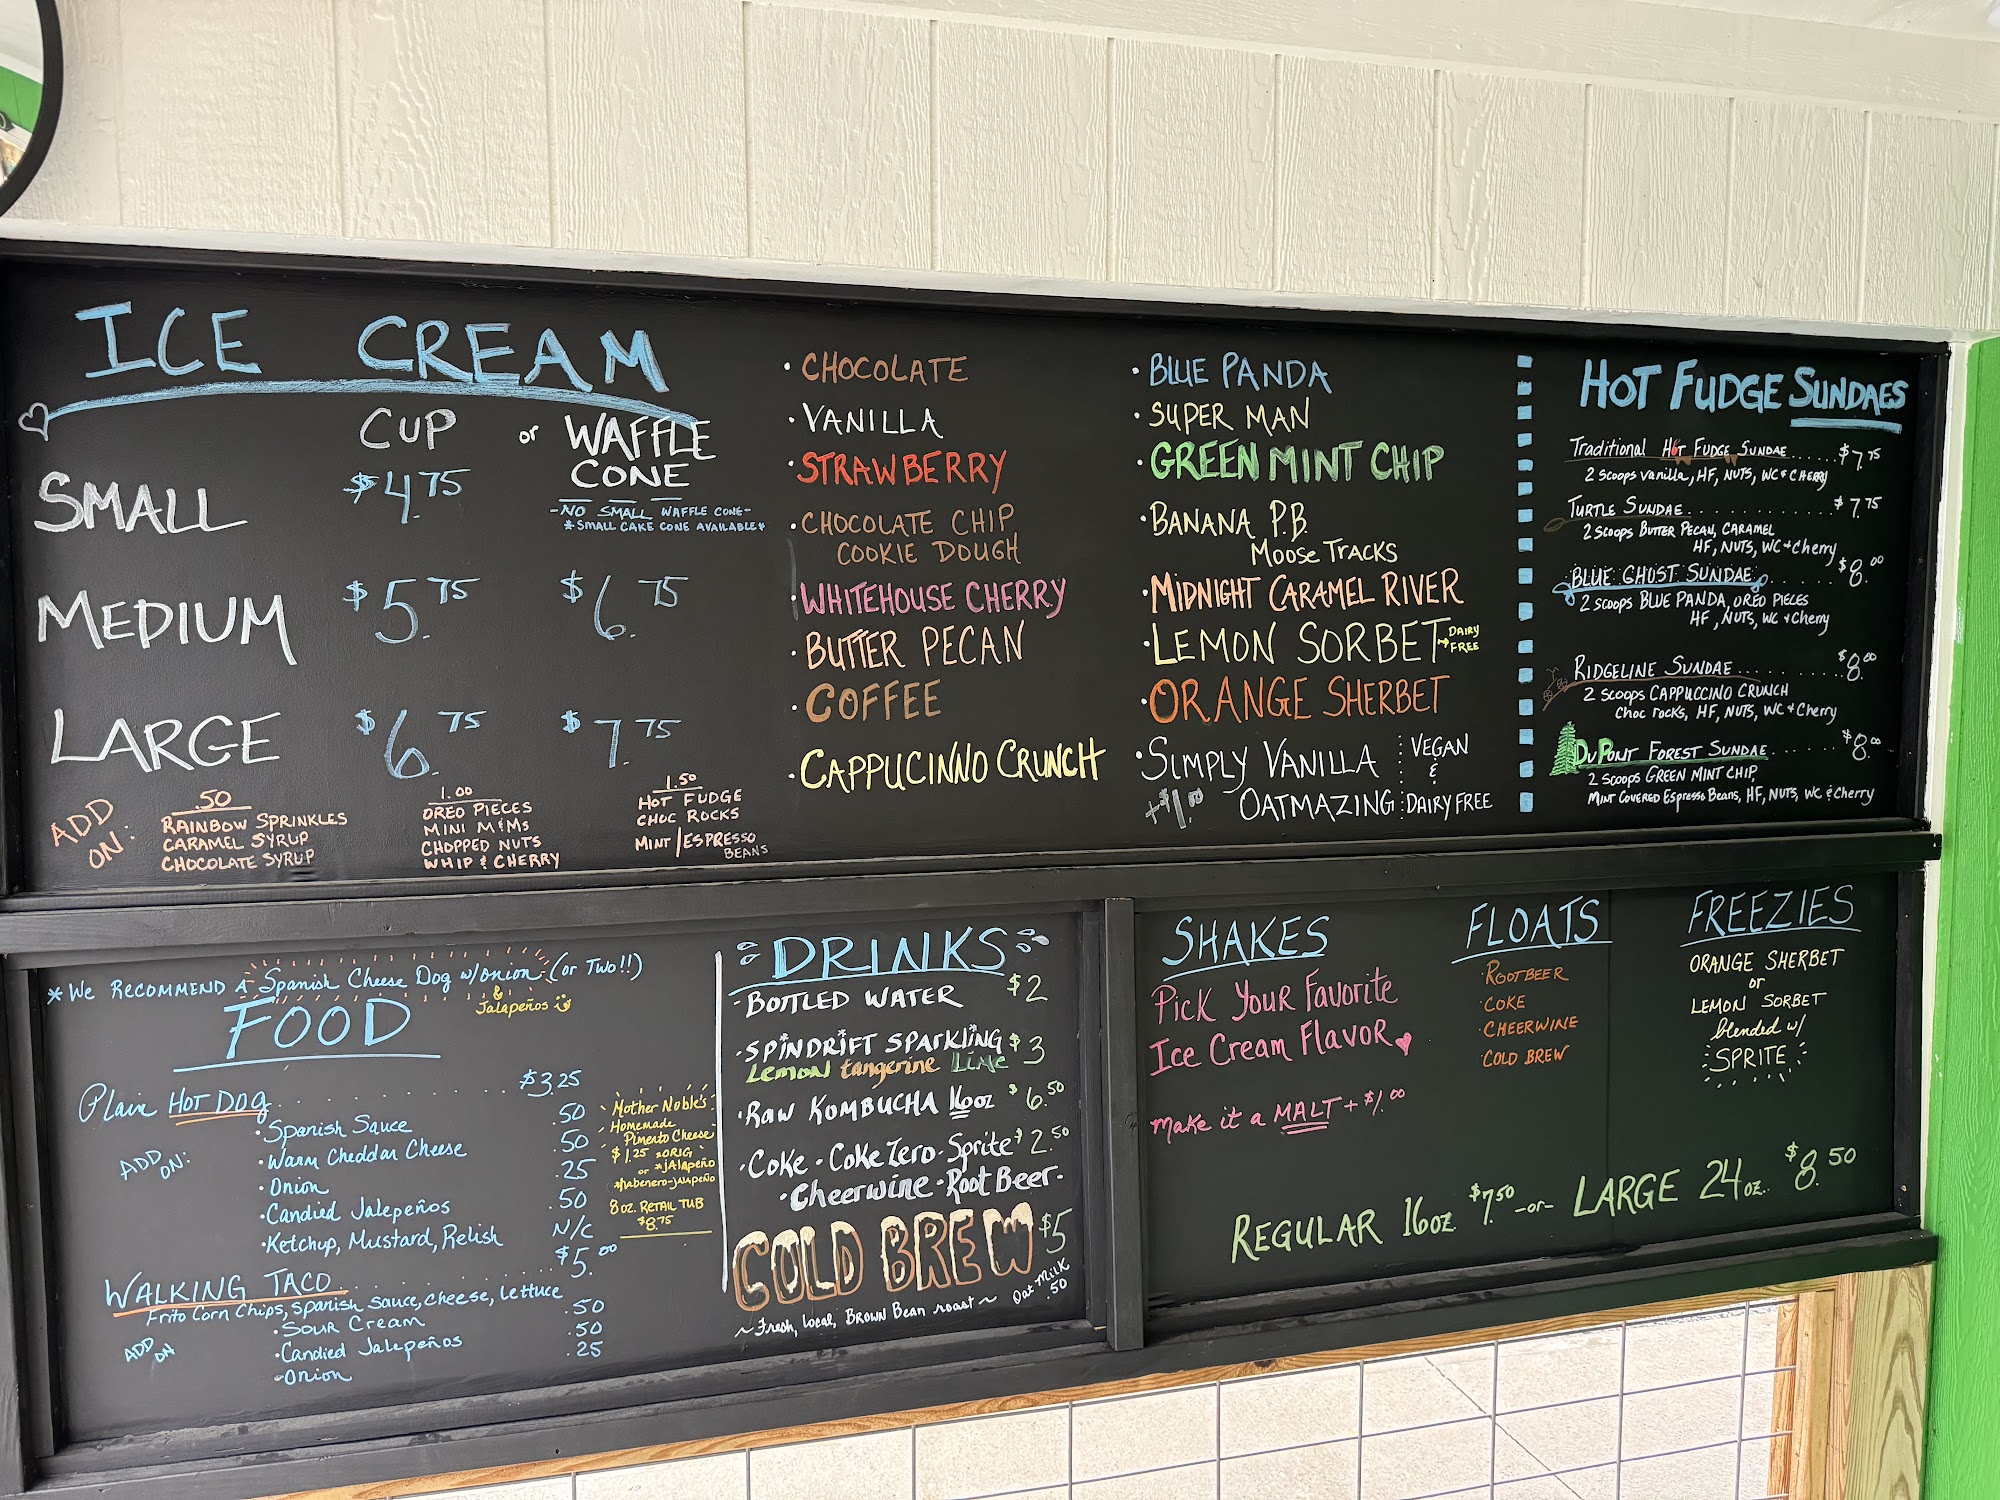 ICE CREAM
CUP or WAFFLE CONE
SMALL $4.75 -NO SMALL WAFFLE CONE-
*SMALL CAKE CONE AVAILABLE*
MEDIUM $5.75 $6.75
LARGE $6.75 $7.75
ADD ON:
.50
RAINBOW SPRINKLES
CARAMEL SYRUP
CHOCOLATE SYRUP
1.00
OREO PIECES
MINI M&Ms
CHOPPED NUTS
WHIP & CHERRY
1.50
HOT FUDGE
CHOC ROCKS
MINT/ESPRESSO
BEANS
• CHOCOLATE
• VANILLA
• STRAWBERRY
• CHOCOLATE CHIP
COOKIE DOUGH
• WHITEHOUSE CHERRY
• BUTTER PECAN
• COFFEE
• CAPPUCINNO CRUNCH
• BLUE PANDA
• SUPER MAN
• GREEN MINT CHIP
• BANANA P.B.
MOOSE TRACKS
• MIDNIGHT CARAMEL RIVER
• LEMON SORBET → DAIRY FREE
• ORANGE SHERBET
• SIMPLY VANILLA VEGAN
&
+$1.00 OATMAZING DAIRY FREE
HOT FUDGE SUNDAES
Traditional HOT FUDGE SUNDAE..... $7.75
2 Scoops vanilla, HF, NUTS, WC & CHERRY
TURTLE SUNDAE.............. $7.75
2 Scoops BUTTER PECAN, CARAMEL
HF, NUTS, WC & Cherry
BLUE GHOST SUNDAE....... $8.00
2 scoops BLUE PANDA, OREO PIECES
HF, NUTS, WC & Cherry
RIDGELINE SUNDAE........ $8.00
2 Scoops CAPPUCCINO CRUNCH
Choc rocks, HF, NUTS, WC & Cherry
DUPONT FOREST SUNDAE..... $8.00
2 Scoops GREEN MINT CHIP,
MINT COVERED Espresso Beans, HF, NUTS, WC & Cherry
*WE RECOMMEND A Spanish Cheese Dog w/onion (or Two!!)
& Jalapeños
FOOD
Plain HOT DOG............ $3.25
ADD ON:
•Spanish Sauce .50
•Warm Cheddar Cheese .50
•Onion .25
•Candied Jalepeños .50
•Ketchup, Mustard, Relish N/C
WALKING TACO............ $5.00
Frito Corn Chips, Spanish Sauce, Cheese, Lettuce
ADD ON
•Sour Cream .50
•Candied Jalepeños .50
•Onion .25
Mother Noble's
Homemade
Pimento Cheese
$1.25 *ORIG
or *JALAPEÑO
*habenero-JALAPEÑO
8oz. RETAIL TUB
$8.75
DRINKS
•BOTTLED WATER $2
•SPINDRIFT SPARKLING $3
Lemon tangerine Lime
•RAW KOMBUCHA 16oz $6.50
•Coke • Coke Zero • Sprite $2.50
•Cheerwine • Root Beer •
COLD BREW $5
~Fresh, local, BROWN Bean roast~ Oat Milk .50
SHAKES
Pick Your Favorite
Ice Cream Flavor
Make it a MALT + $1.00
FLOATS
•ROOTBEER
•COKE
•CHEERWINE
•COLD BREW
FREEZIES
ORANGE SHERBET
or
LEMON SORBET
blended w/
SPRITE
REGULAR 16oz. $7.50 -or- LARGE 24oz. $8.50